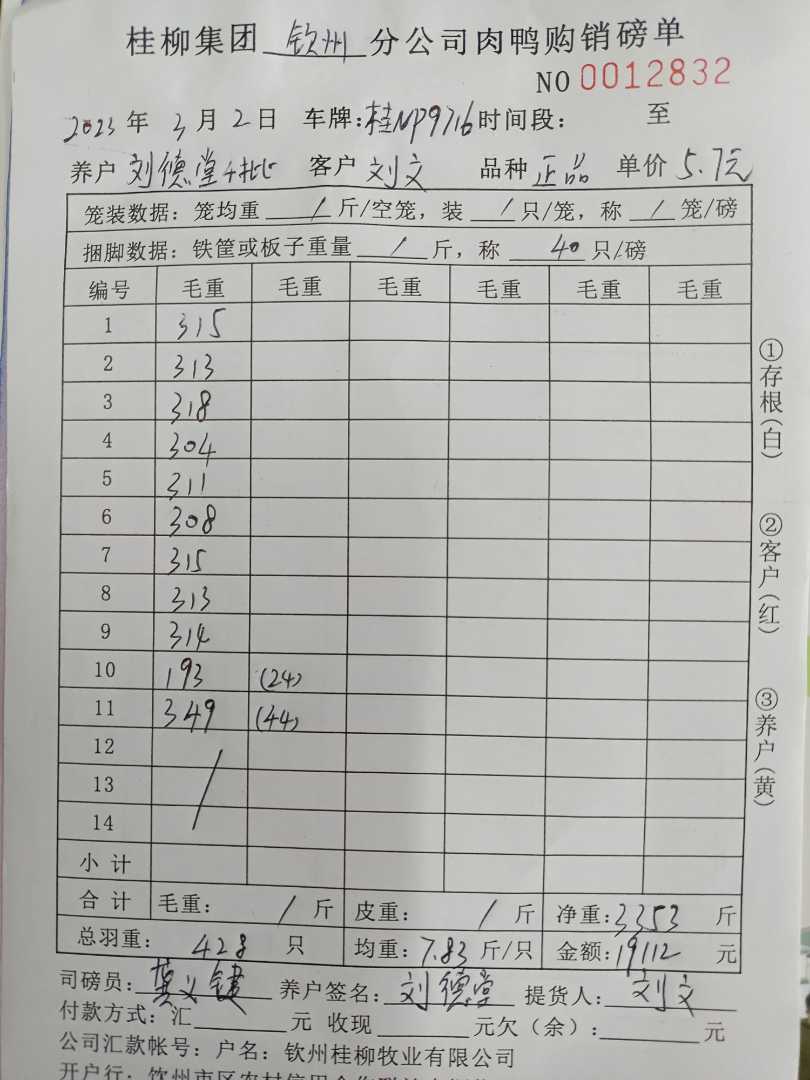 桂柳集团 钦州 分公司肉鸭购销磅单
NO 0012832
2023 年 3 月 2 日 车牌:桂NP9716 时间段: 至
养户 刘德堂4批 客户 刘文 品种 正品 单价 5.7元
笼装数据: 笼均重 / 斤/空笼, 装 / 只/笼, 称 / 笼/磅
捆脚数据: 铁筐或板子重量 / 斤, 称 40 只/磅
编号 毛重 毛重 毛重 毛重 毛重 毛重
1 315
2 313
3 318
4 304
5 311
6 308
7 315
8 313
9 314
10 193 (24)
11 349 (44)
12
13 /
14
小 计
合 计 毛重: / 斤 皮重: / 斤 净重: 3353 斤
总羽重: 428 只 均重: 7.83 斤/只 金额: 19112 元
司磅员: 莫义键 养户签名: 刘德堂 提货人: 刘文
付款方式: 汇 元 收现 元欠(余): 元
公司汇款帐号: 户名: 钦州桂柳牧业有限公司
开户行: 钦州市区农村信用合作联社
①存根(白)
②客户(红)
③养户(黄)